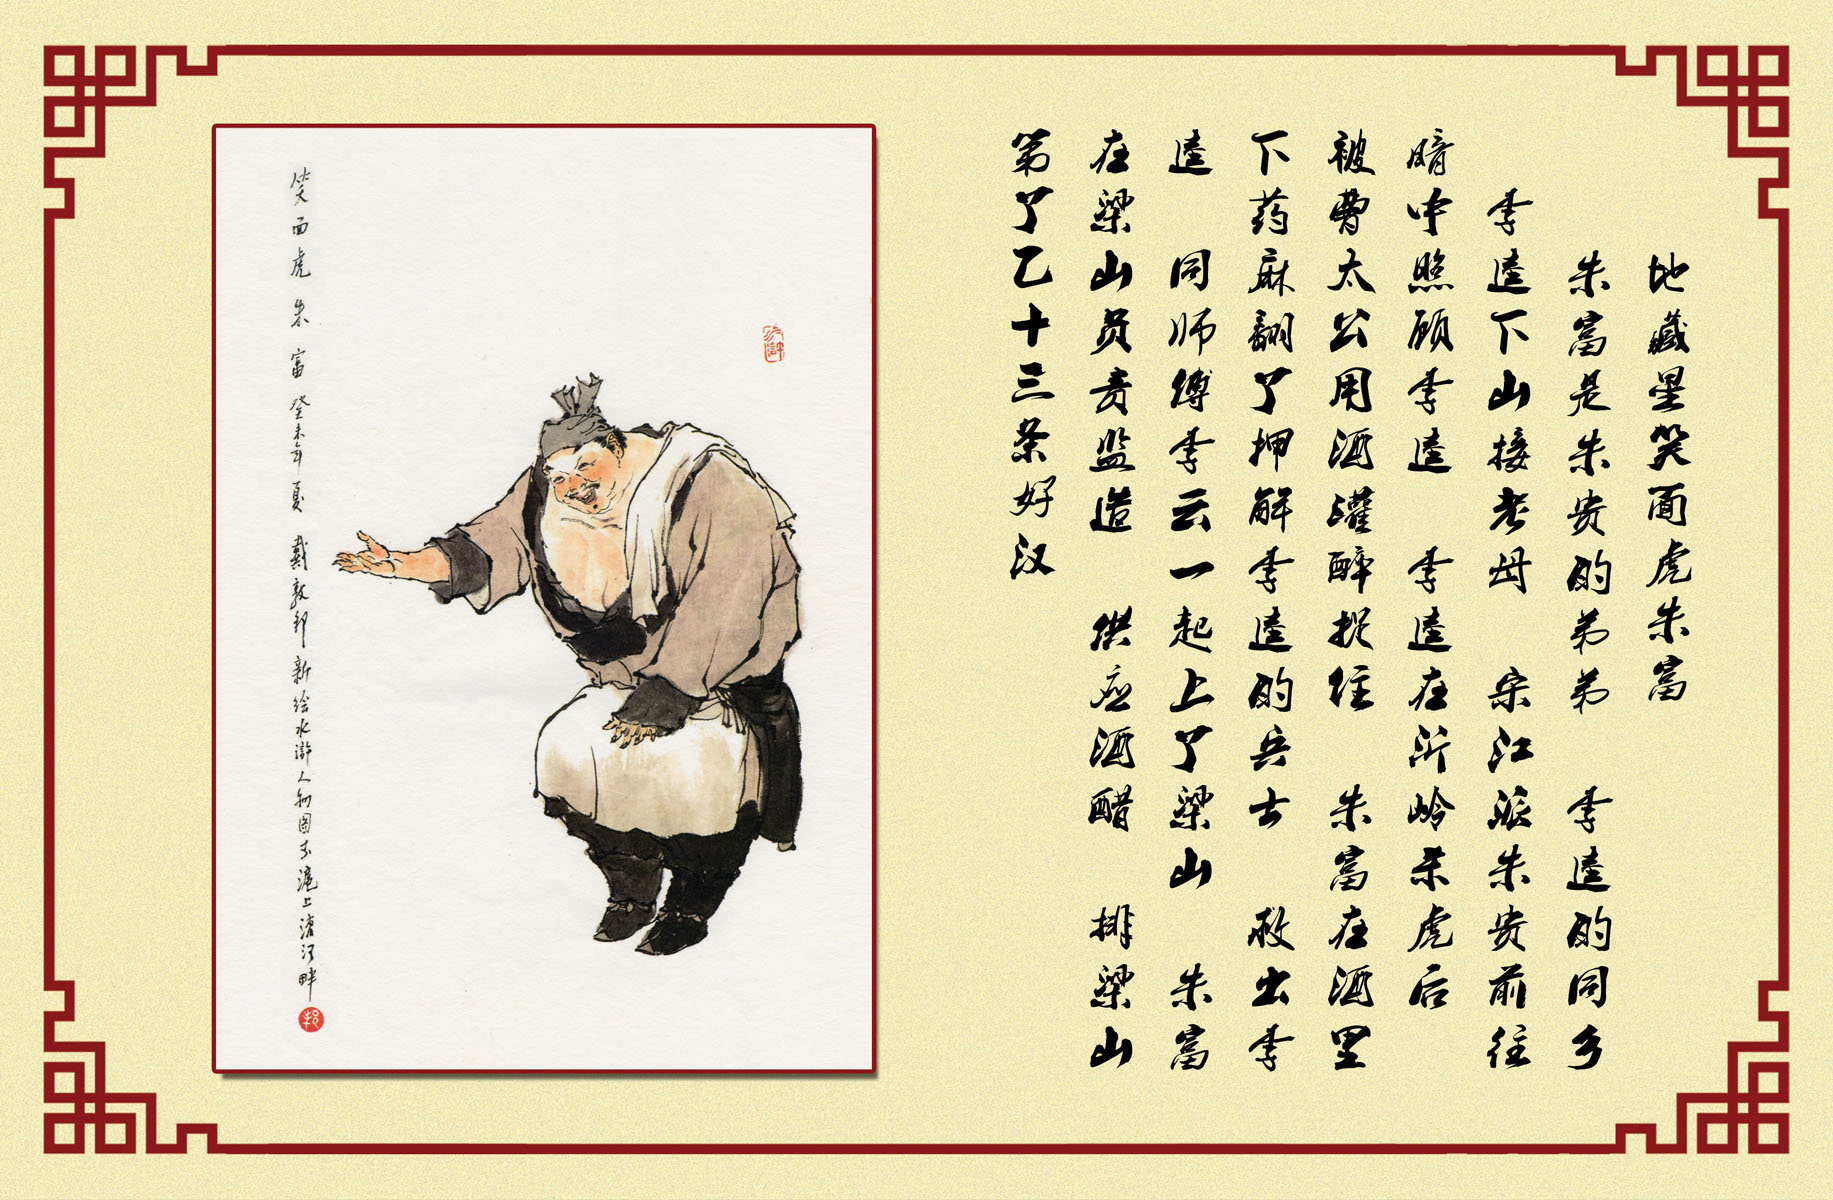 地藏星笑面虎朱富
朱富是朱贵的弟弟 李逵的同乡
李逵下山接老母 宋江派朱贵前往
暗中照顾李逵 李逵在沂岭杀虎后
被曹太公用酒灌醉捉住 朱富在酒里
下药麻翻了押解李逵的兵士 救出李
逵 同师缚李云一起上了梁山 朱富
在梁山员责监造 供应酒醋 排梁山
第了乙十三条好汉
笑面虎朱富 癸未年夏 戴敦邦新绘水滸人物图于滬上江畔